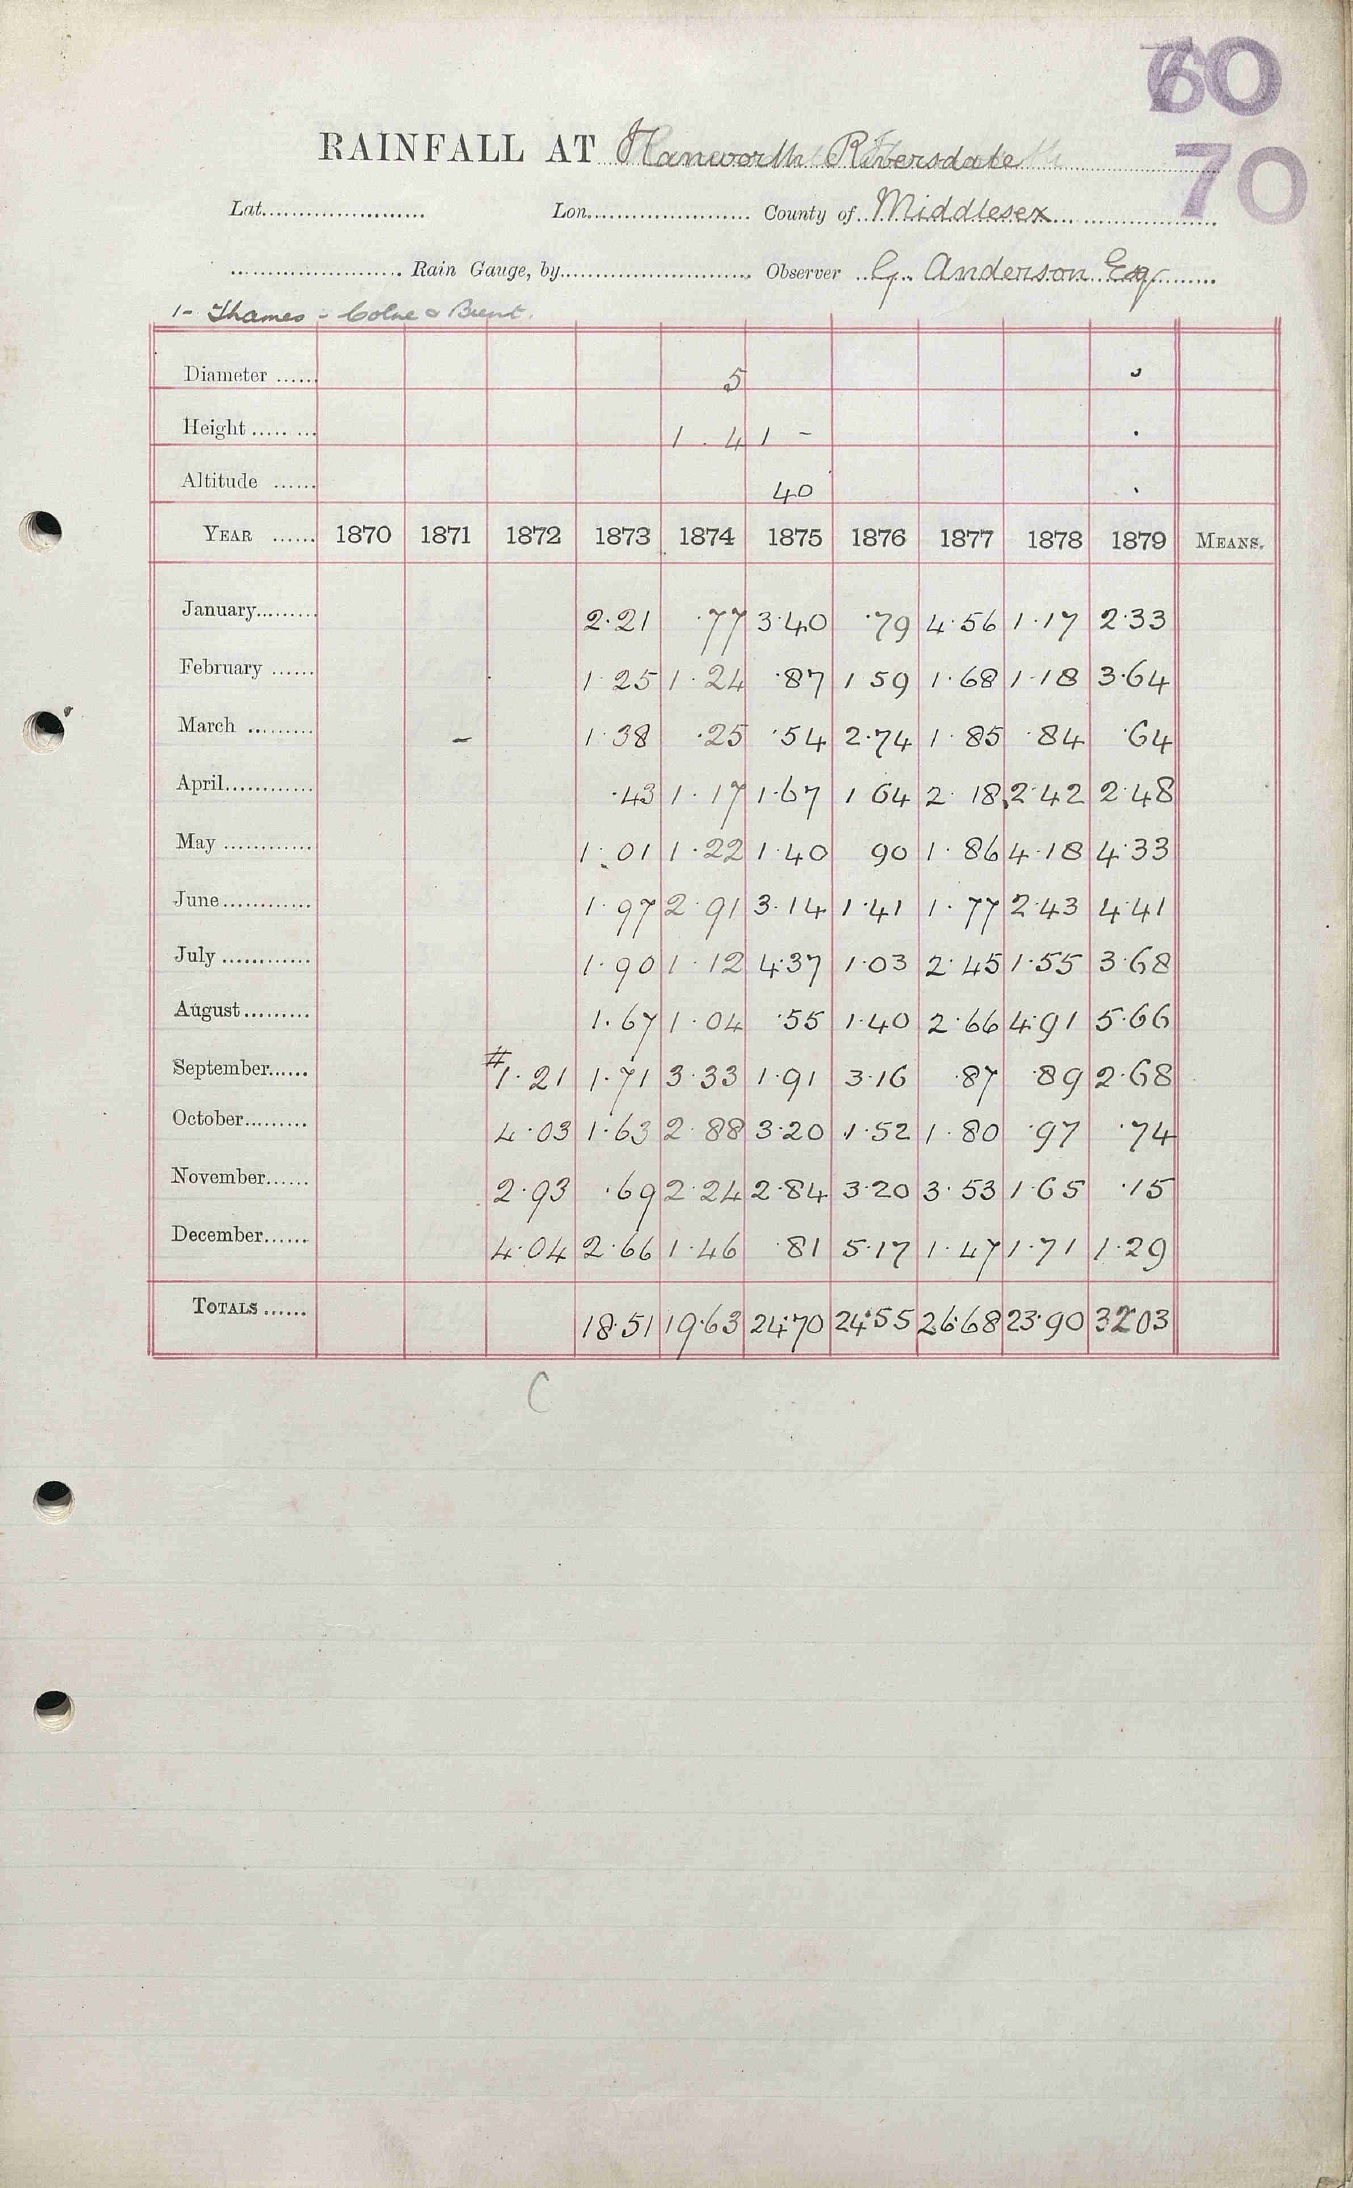 60
70
RAINFALL AT Hanworth Riversdale
Lat. Lon. County of Middlesex
Rain Gauge, by Observer G. Anderson Esq
1- Thames - Colne & Brent.
Diameter 5
Height 1 . 4 1 -
Altitude 40
YEAR 1870 1871 1872 1873 1874 1875 1876 1877 1878 1879 MEANS.
January 2.21 .77 3.40 .79 4.56 1.17 2.33
February 1.25 1.24 .87 1 59 1.68 1.18 3.64
March - 1.38 .25 .54 2.74 1.85 .84 .64
April .43 1.17 1.67 1 64 2.18 2.42 2.48
May 1.01 1.22 1.40 90 1.86 4.18 4.33
June 1.97 2.91 3.14 1.41 1.77 2.43 4.41
July 1.90 1.12 4.37 1.03 2.45 1.55 3.68
August 1.67 1.04 .55 1.40 2.66 4.91 5.66
September #1.21 1.71 3.33 1.91 3.16 .87 .89 2.68
October 4.03 1.63 2.88 3.20 1.52 1.80 .97 .74
November 2.93 .69 2.24 2.84 3.20 3.53 1.65 .15
December 4.04 2.66 1.46 .81 5.17 1.47 1.71 1.29
TOTALS 18.51 19.63 24.70 24.55 26.68 23.90 32 03
C